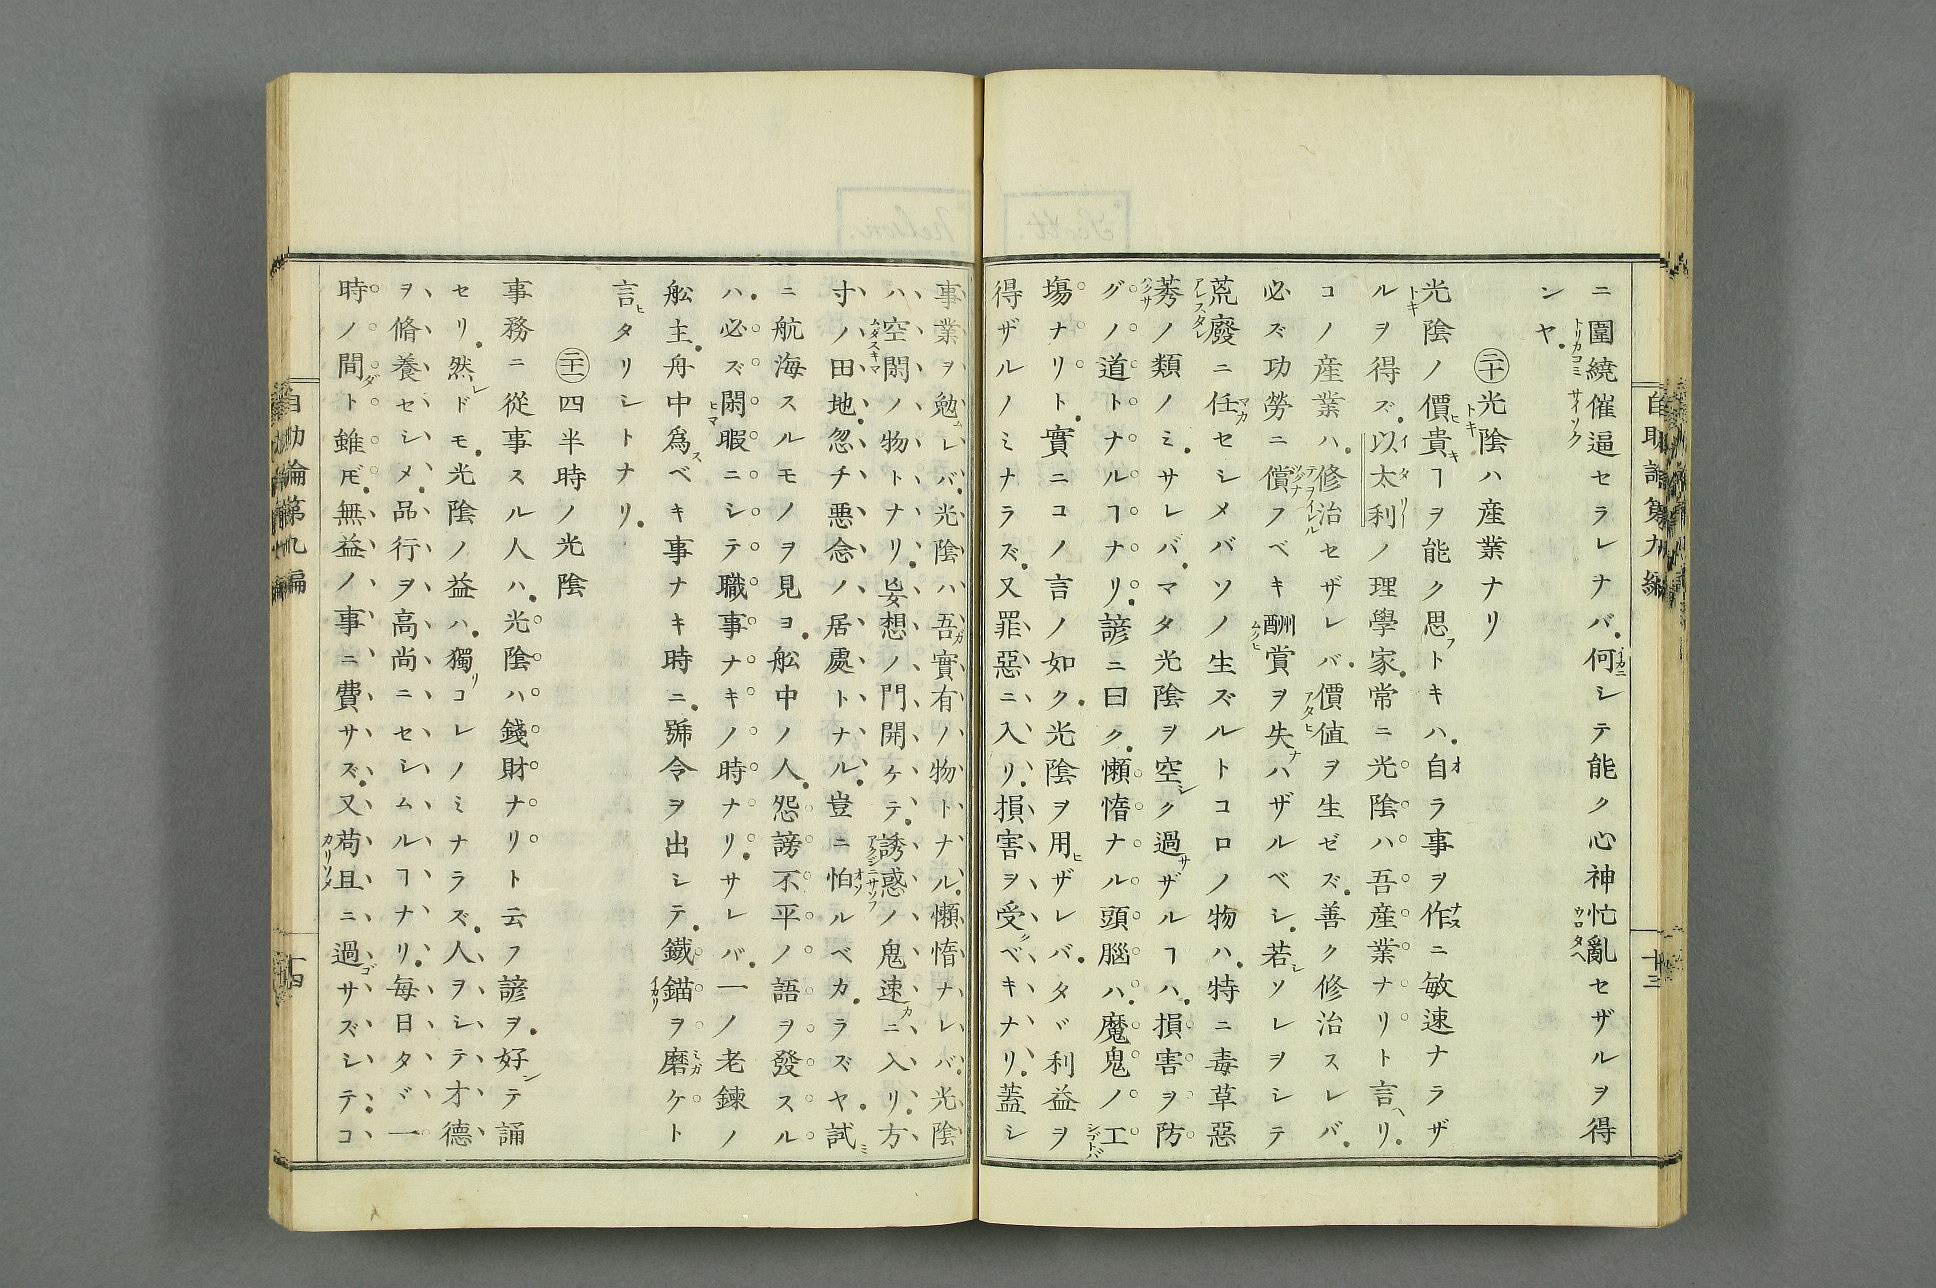 自助論第九編
十三
ニ圍繞催逼セラレナバ。何シテ能ク心神忙亂セザルヲ得
ンヤ。
㊁十光陰ハ産業ナリ
光陰ノ價貴ヿヲ能ク思トキハ。自ラ事ヲ作ニ敏速ナラザ
ルヲ得ズ。以太利ノ理學家。常ニ光陰ハ吾産業ナリト言リ。
コノ産業ハ。修治セザレバ。價値ヲ生ゼズ。善ク修治スレバ。
必ズ功勞ニ償フベキ酬賞ヲ失ハザルベシ。若ソレヲシテ
荒廢ニ任セシメバソノ生ズルトコロノ物ハ。特ニ毒草惡
莠ノ類ノミ。サレバ。マタ光陰ヲ空ク過ザルヿハ。損害ヲ防
グノ道トナルヿナリ。諺ニ曰ク。懶惰ナル頭腦ハ。魔鬼ノ工
塲ナリト。實ニコノ言ノ如ク。光陰ヲ用ザレバ。タヾ利益ヲ
得ザルノミナラズ。又罪惡ニ入リ。損害ヲ受ベキナリ。蓋シ
事業ヲ勉レバ。光陰ハ吾實有ノ物トナル。懶惰ナレバ。光陰
ハ空閑ノ物トナリ。妄想ノ門開ケテ。誘惑ノ鬼速ニ入リ。方
寸ノ田地。忽チ悪念ノ居處トナル。豈ニ怕ルベカラズヤ。試
ニ航海スルモノヲ見ヨ。舩中ノ人。怨謗不平ノ語ヲ發スル
ハ。必ズ閑暇ニシテ職事ナキノ時ナリ。サレバ。一ノ老鍊ノ
舩主。舟中爲ベキ事ナキ時ニ。號令ヲ出シテ。鐵錨ヲ磨ケト
言タリシトナリ。
四半時ノ光陰
事務ニ從事スル人ハ。光陰ハ錢財ナリト云フ諺ヲ。好テ誦
セリ。然ドモ。光陰ノ益ハ。獨コレノミナラズ。人ヲシテ才德
ヲ脩養セシメ。品行ヲ高尚ニセシムルヿナリ。毎日タヾ一
時ノ間ト雖𪜈。無益ノ事ニ費サズ。又苟且ニ過サズシテ。コ
自助論第九編
十四